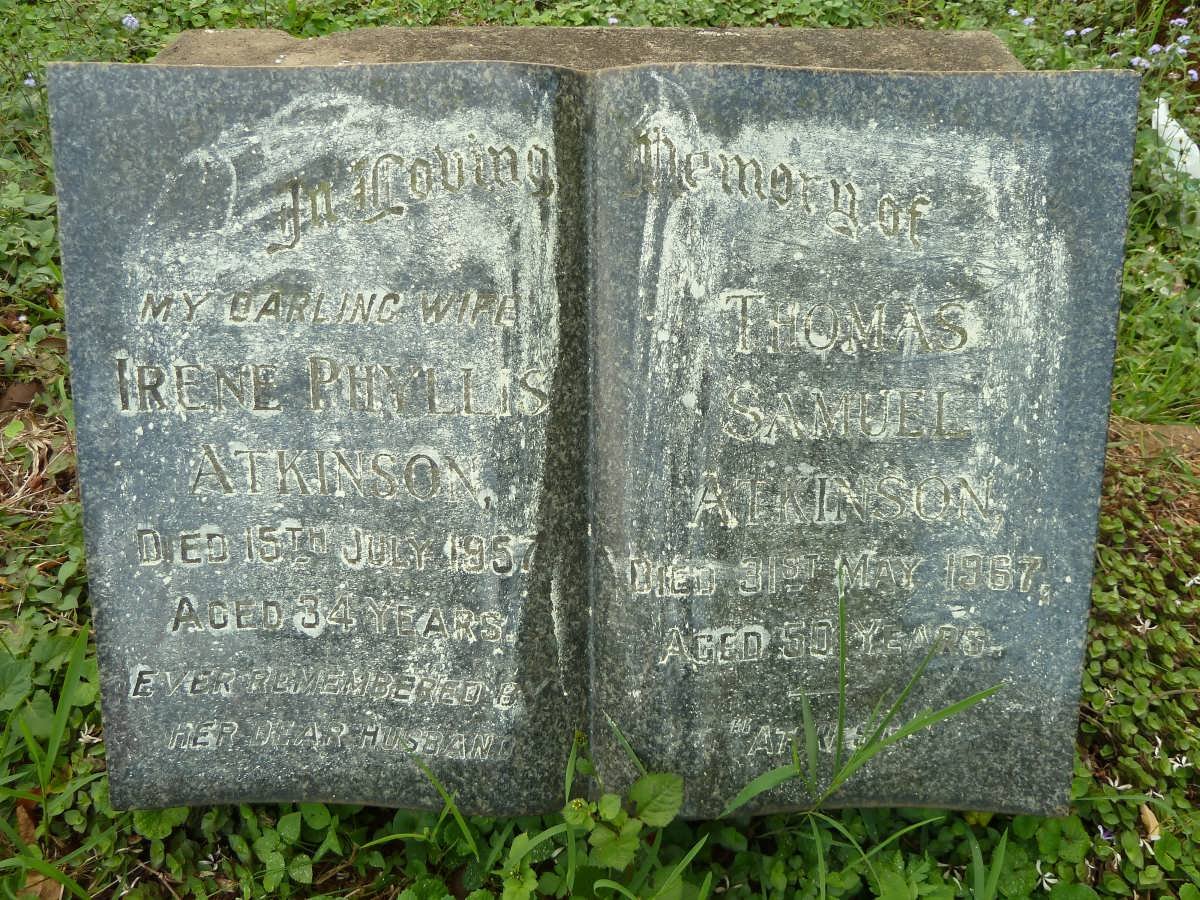 In Loving Memory of
MY DARLING WIFE
IRENE PHYLLIS
ATKINSON,
DIED 15TH JULY 1957
AGED 34 YEARS.
EVER REMEMBERED BY
HER DEAR HUSBAND
THOMAS
SAMUEL
ATKINSON,
DIED 31ST MAY 1967,
AGED 50 YEARS.
"AT REST"